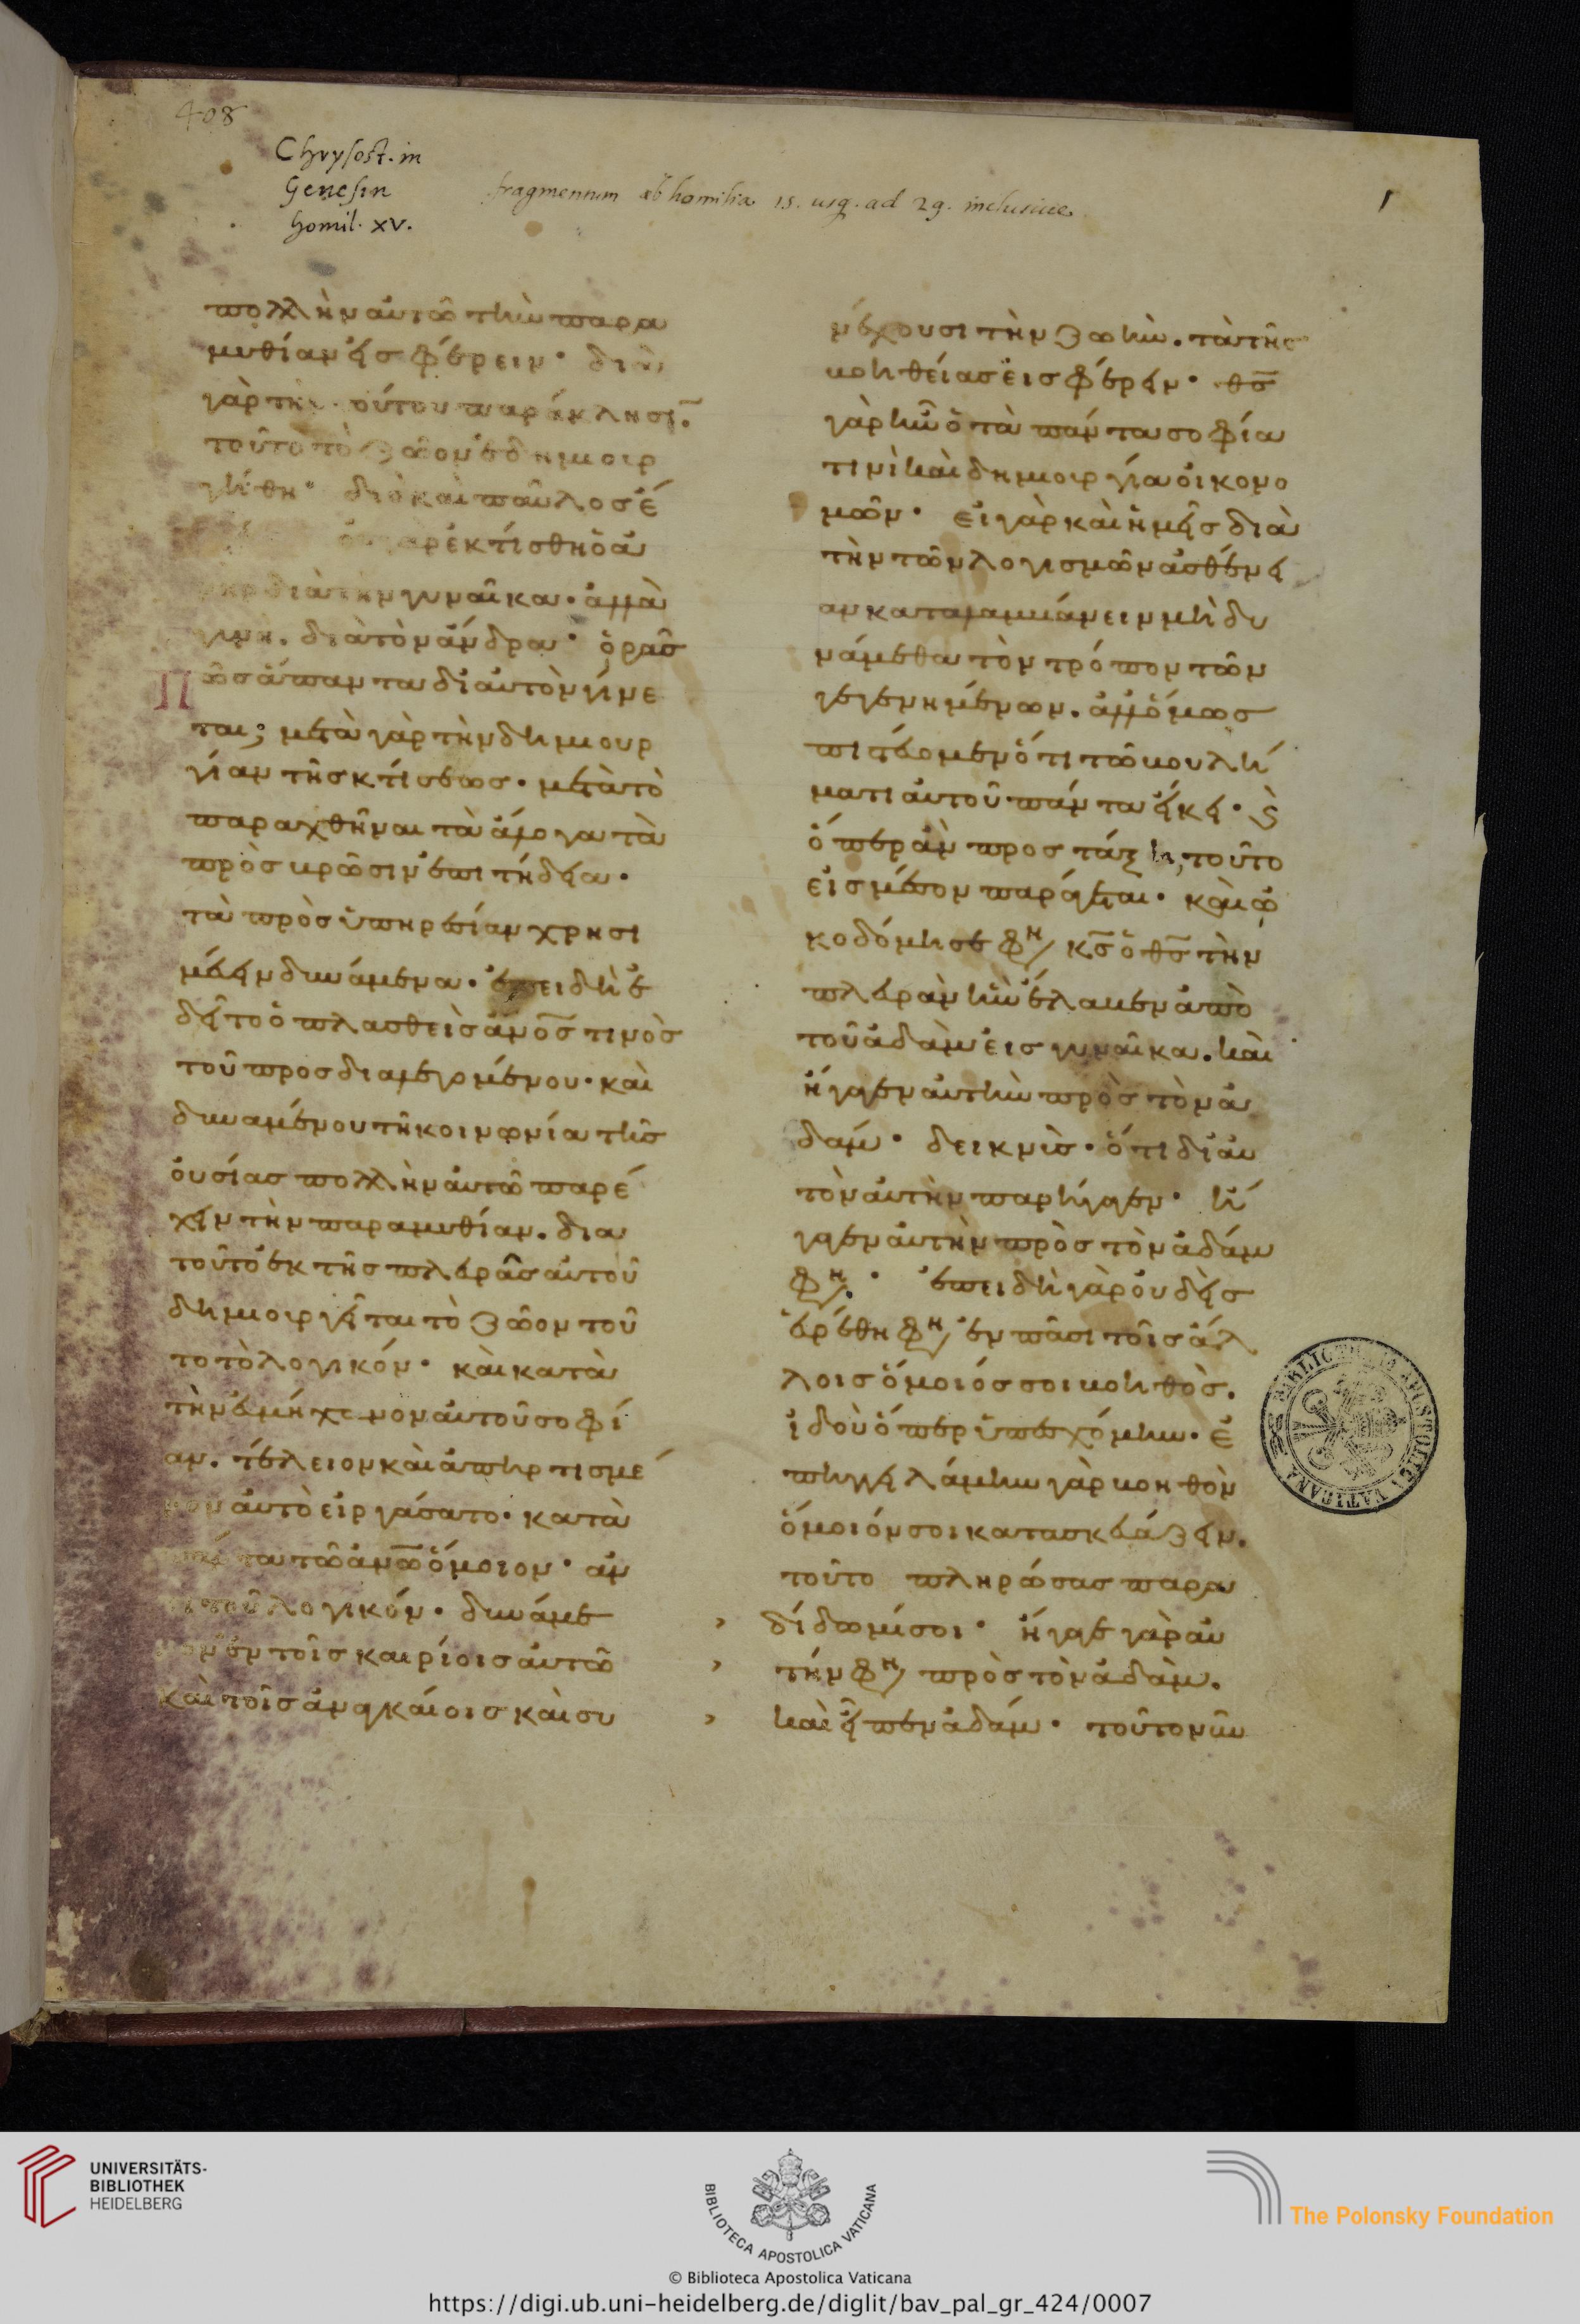 408
Chrysost. in
Genesin
homil. XV.
fragmentum ab homilia 15. usq. ad 29. inclusiue
1
πολλὴν αὐτῶ τὴν παρα
μυθίαν εἰσφέρειν· διὰ
γὰρ τὴν τούτου παράκλησι̅.
τοῦτο τὸ ζῶον ἐδημιουρ
γήθη· διὸ καὶ παῦλος ἔ
οὐ γὰρ ἐκτίσθη ὁ ἀ
νὴρ διὰ τὴν γυναῖκα· ἀλλὰ
γυνὴ. διὰ τὸν ἄνδρα· ὁρᾶσ
Πῶσ ἅπαντα δι' αὐτὸν γίνε
ται; μετὰ γὰρ τὴν δημιουρ
γίαν τῆσ κτίσεωσ· μετὰ τὸ
παραχθῆναι τὰ ἄλογα τὰ
πρὸσ βρῶσιν ἐπιτήδεια·
τὰ πρὸσ ὑπηρεσίαν χρησι
μεύειν δυνάμενα· ἐπειδὴ ἐ
δεῖτο ὁ πλασθεὶσ ἀνο̅σ τινὸσ
τοῦ προσδιαλεγομένου· καὶ
δυναμένου τῆ κοινωνία τῆσ
οὐσίασ πολλὴν αὐτῶ παρέ
χειν τὴν παραμυθίαν. δια
τοῦτο ἐκ τῆσ πλευρᾶσ αὐτοῦ
δημιουργεῖται τὸ ζῶον τοῦ
το τὸ λογικόν· καὶ κατὰ
τὴν εὐμήχανον αὐτοῦ σοφί
αν. τέλειον καὶ ἀπηρτισμέ
νον αὐτὸ εἰργάσατο· κατὰ
πάντα τῶ ἀνω̅ ὅμοιον· αν
τουτ λογικόν· δυνάμε
νον ἐν τοῖσ καιρίοισ αὐτῶ
καὶ τοῖσ ἀναγκαίοισ καὶ συ
νέχουσι τὴν ζωὴν. τὰ τῆσ
βοηθείασ εἰσφέρειν· θσ̅
γὰρ ἦν ὁ τὰ πάντα σοφία
τινὶ καὶ δημιουργία οἰκονο
μῶν· εἰ γὰρ καὶ ἡμεῖσ διὰ
τὴν τῶν λογισμῶν ἀσθένει
αν καταλαμβάνειν μὴ δυ
νάμεθα τὸν τρόπον τῶν
γεγενημένων. ἀλλ' ὅμωσ
πιστεύομεν ὅτι τῶ βουλή
ματι αὐτοῦ πάντα εἴκει· ϗ
ὅπερ ἂν προστάξη, τοῦτο
εἰσ μέσον παράγεται· καὶ ὠ
κοδόμησε φη κσ̅ ὁ θσ̅ τὴν
πλευρὰν ἣν ἔλαβεν ἀπὸ
τοῦ ἀδὰμ εἰσ γυναῖκα. καὶ
ἤγαγεν αὐτὴν πρὸσ τὸν ἀ
δάμ· δεικνὺσ· ὅτι δι' αὐ
τὸν αὐτὴν παρήγαγεν· ἤ
γαγεν αὐτὴν πρὸσ τὸν ἀδάμ
φη· ἐπειδὴ γὰρ οὐδεὶσ
εὑρέθη φη ἐν πᾶσι τοῖσ ἄλ
λοισ ὅμοιόσ σοι βοηθὸσ.
ἰδοὺ ὅπερ ὑπεσχόμην· ἐ
πηγγειλάμην γὰρ βοηθὸν
ὅμοιόν σοι κατασκευάζειν.
τοῦτο πληρώσασ παρα
› δίδωμί σοι· ἤγαγε γὰρ αὐ
› τήν φη πρὸσ τὸν ἀδὰμ.
› καὶ εἶπεν ἀδάμ· τοῦτο νῦν
BIBLIOTHECA APOSTOLICA VATICANA
UNIVERSITÄTS-
BIBLIOTHEK
HEIDELBERG
BIBLIOTECA APOSTOLICA VATICANA
The Polonsky Foundation
© Biblioteca Apostolica Vaticana
https://digi.ub.uni-heidelberg.de/diglit/bav_pal_gr_424/0007